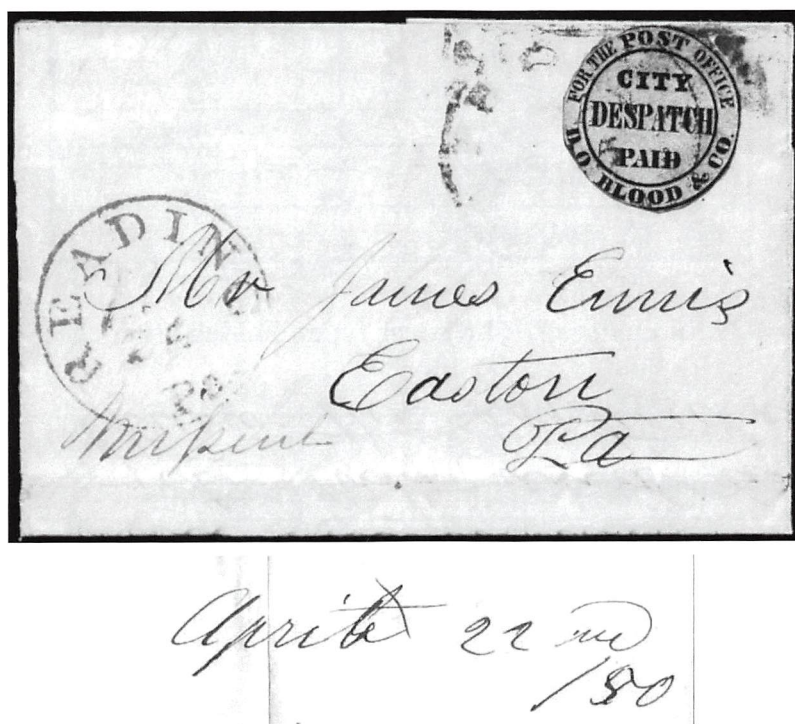 FOR THE POST OFFICE
CITY
DESPATCH
PAID
D.O. BLOOD & CO.
READING
Mr James Ennis
Easton
Pa
April 22nd
/50